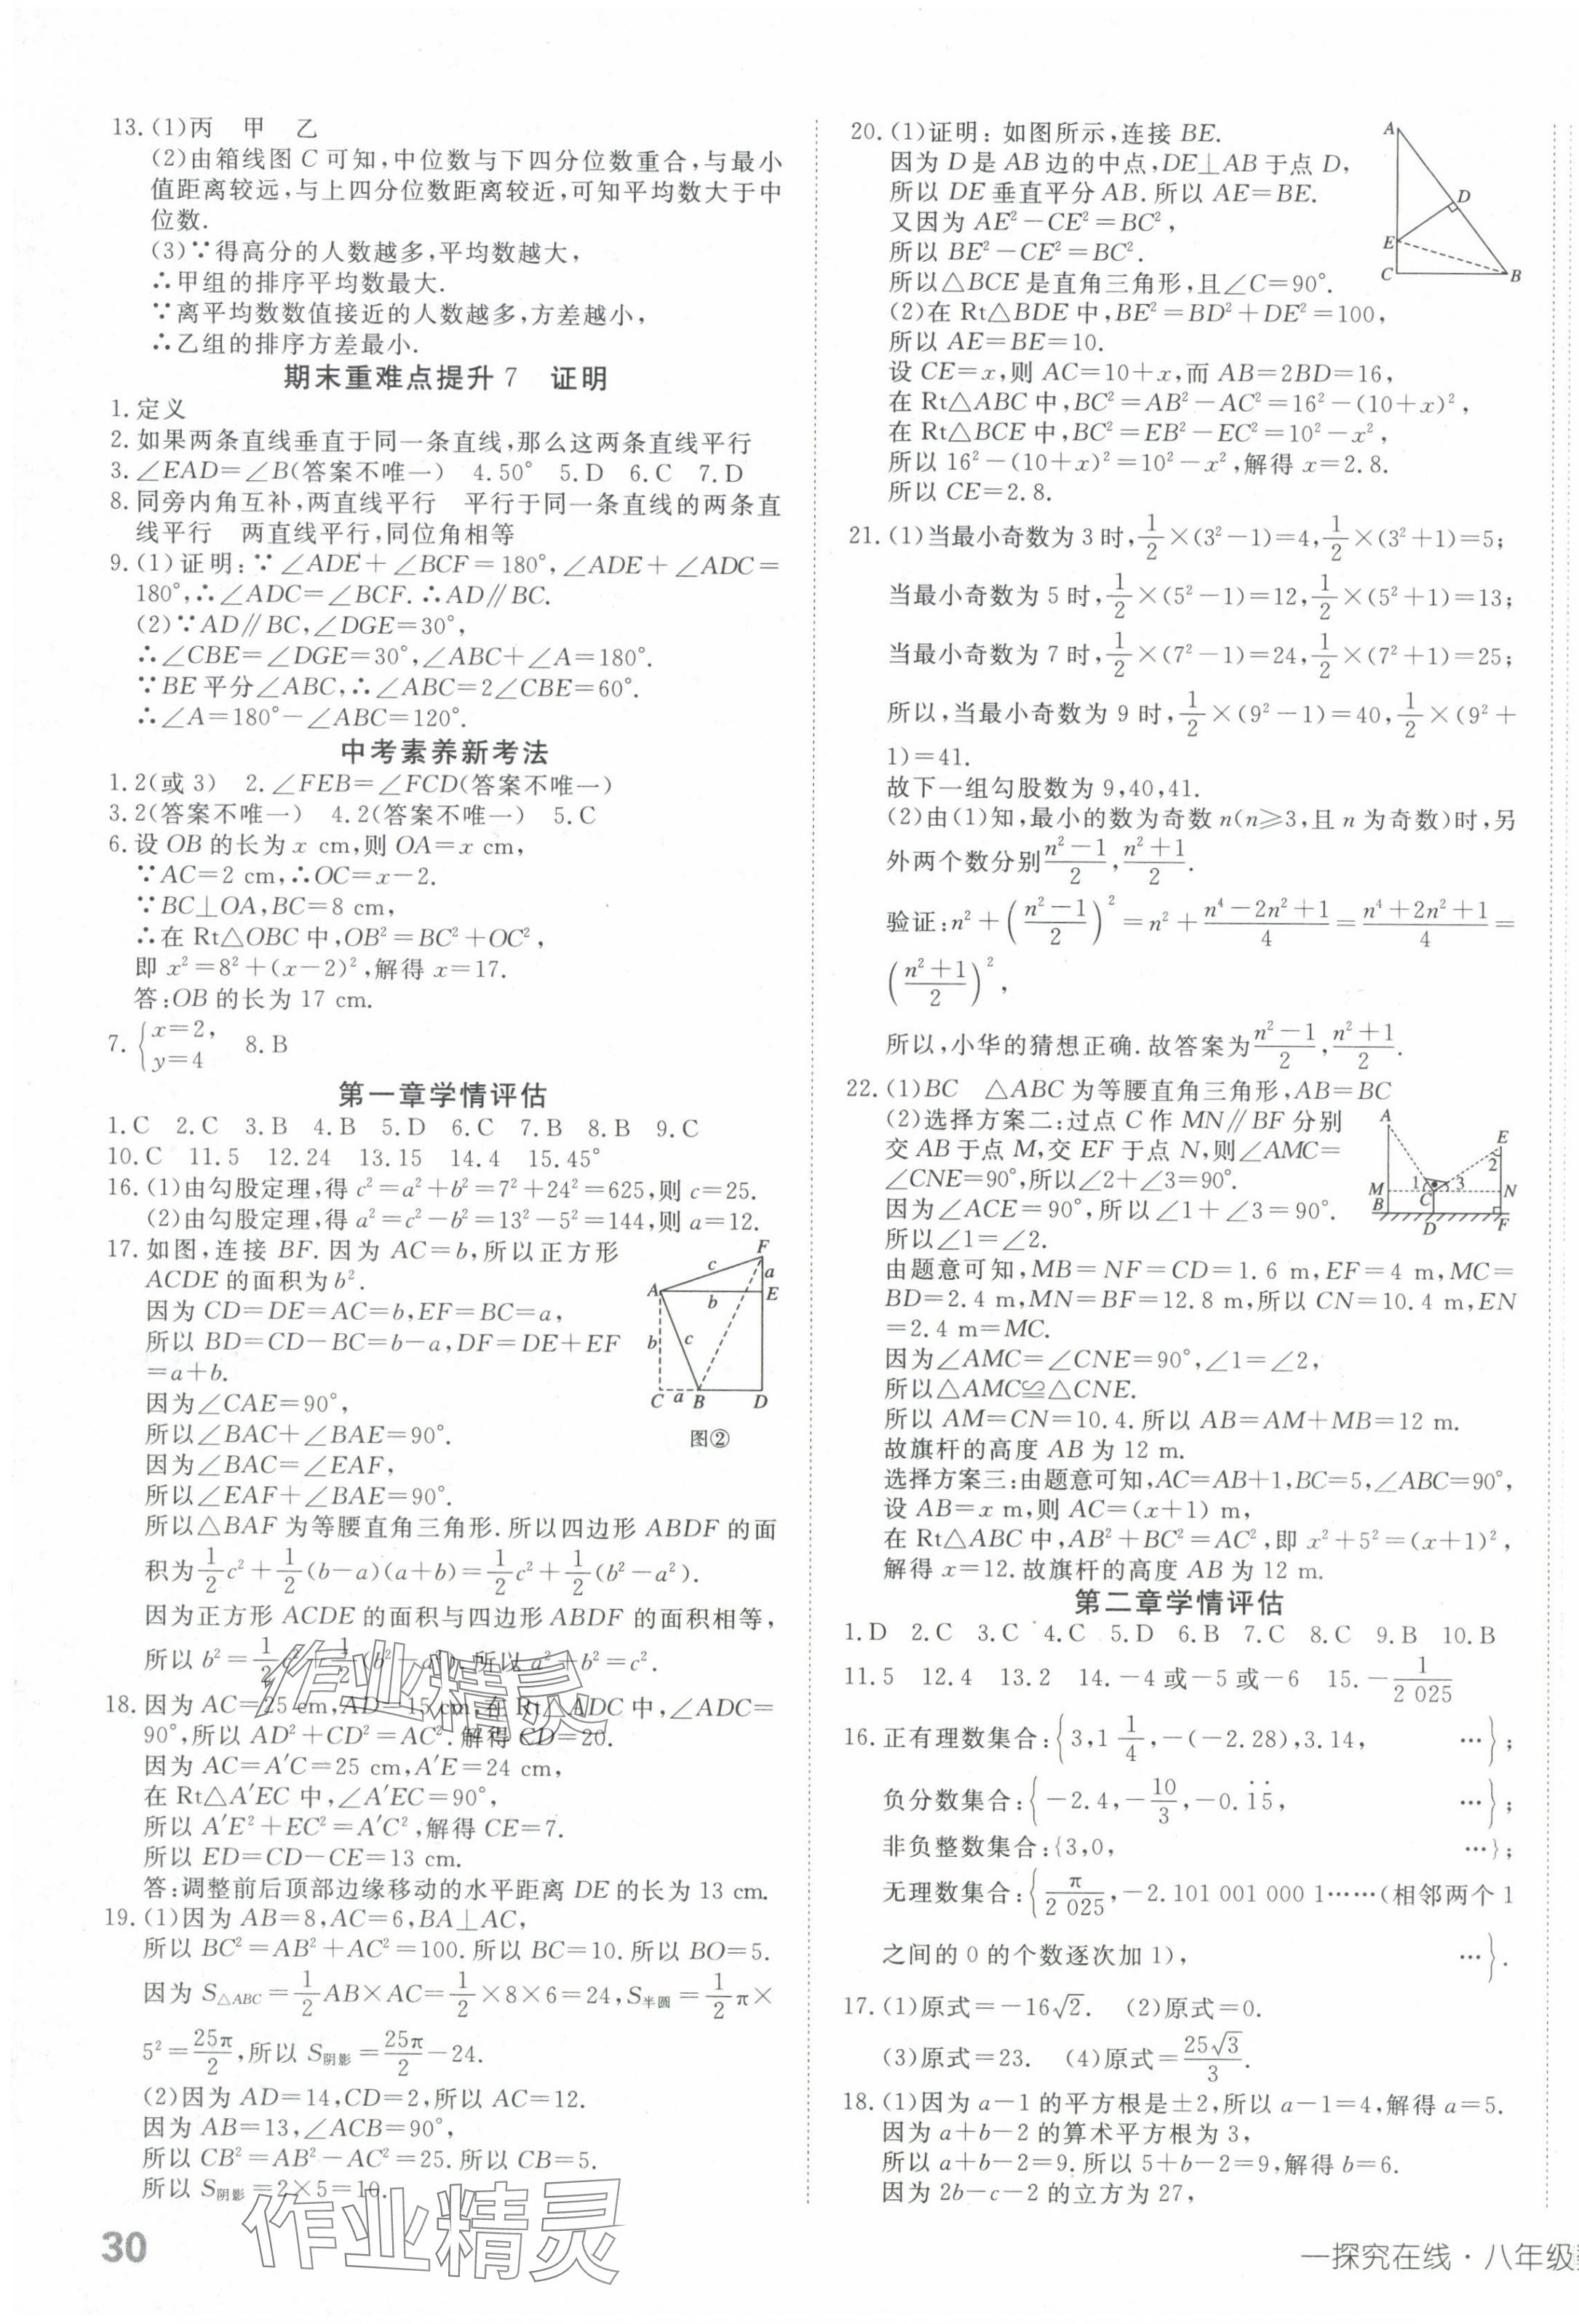 13. (1)丙　甲　乙
(2)由箱线图 C 可知,中位数与下四分位数重合,与最小
值距离较远,与上四分位数距离较近,可知平均数大于中
位数.
(3)∵得高分的人数越多,平均数越大,
∴甲组的排序平均数最大.
∵离平均数数值接近的人数越多,方差越小,
∴乙组的排序方差最小.
期末重难点提升 7　证明
1. 定义
2. 如果两条直线垂直于同一条直线,那么这两条直线平行
3. ∠EAD=∠B(答案不唯一)　4. 50°　5. D　6. C　7. D
8. 同旁内角互补,两直线平行　平行于同一条直线的两条直
线平行　两直线平行,同位角相等
9. (1)证明:∵∠ADE+∠BCF=180°,∠ADE+∠ADC=
180°,∴∠ADC=∠BCF. ∴AD∥BC.
(2)∵AD∥BC,∠DGE=30°,
∴∠CBE=∠DGE=30°,∠ABC+∠A=180°.
∵BE 平分∠ABC,∴∠ABC=2∠CBE=60°.
∴∠A=180°-∠ABC=120°.
中考素养新考法
1. 2(或 3)　2. ∠FEB=∠FCD(答案不唯一)
3. 2(答案不唯一)　4. 2(答案不唯一)　5. C
6. 设 OB 的长为 x cm,则 OA=x cm,
∵AC=2 cm,∴OC=x-2.
∵BC⊥OA,BC=8 cm,
∴在 Rt△OBC 中,OB²=BC²+OC²,
即 x²=8²+(x-2)²,解得 x=17.
答:OB 的长为 17 cm.
7. {x=2, y=4　8. B
第一章学情评估
1. C　2. C　3. B　4. B　5. D　6. C　7. B　8. B　9. C
10. C　11. 5　12. 24　13. 15　14. 4　15. 45°
16. (1)由勾股定理,得 c²=a²+b²=7²+24²=625,则 c=25.
(2)由勾股定理,得 a²=c²-b²=13²-5²=144,则 a=12.
17. 如图,连接 BF. 因为 AC=b,所以正方形
ACDE 的面积为 b².
因为 CD=DE=AC=b,EF=BC=a,
所以 BD=CD-BC=b-a,DF=DE+EF
=a+b.
因为∠CAE=90°,
所以∠BAC+∠BAE=90°.
因为∠BAC=∠EAF,
所以∠EAF+∠BAE=90°.
F c a A b E b c C a B D
图②
所以△BAF 为等腰直角三角形. 所以四边形 ABDF 的面
积为 1/2 c²+1/2(b-a)(a+b)=1/2 c²+1/2(b²-a²).
因为正方形 ACDE 的面积与四边形 ABDF 的面积相等,
所以 b²=1/2 c²+1/2(b²-a²). 所以 a²+b²=c².
18. 因为 AC=25 cm,AD=15 cm,在 Rt△ADC 中,∠ADC=
90°,所以 AD²+CD²=AC². 解得 CD=20.
因为 AC=A′C=25 cm,A′E=24 cm,
在 Rt△A′EC 中,∠A′EC=90°,
所以 A′E²+EC²=A′C²,解得 CE=7.
所以 ED=CD-CE=13 cm.
答:调整前后顶部边缘移动的水平距离 DE 的长为 13 cm.
19. (1)因为 AB=8,AC=6,BA⊥AC,
所以 BC²=AB²+AC²=100. 所以 BC=10. 所以 BO=5.
因为 S△ABC=1/2 AB×AC=1/2×8×6=24,S半圆=1/2 π×
5²=25π/2,所以 S阴影=25π/2-24.
(2)因为 AD=14,CD=2,所以 AC=12.
因为 AB=13,∠ACB=90°,
所以 CB²=AB²-AC²=25. 所以 CB=5.
所以 S阴影=2×5=10.
作业精灵
作业精灵
30
20. (1)证明: 如图所示,连接 BE.
因为 D 是 AB 边的中点,DE⊥AB 于点 D,
所以 DE 垂直平分 AB. 所以 AE=BE.
又因为 AE²-CE²=BC²,
所以 BE²-CE²=BC².
所以△BCE 是直角三角形,且∠C=90°.
A D E C B
(2)在 Rt△BDE 中,BE²=BD²+DE²=100,
所以 AE=BE=10.
设 CE=x,则 AC=10+x,而 AB=2BD=16,
在 Rt△ABC 中,BC²=AB²-AC²=16²-(10+x)²,
在 Rt△BCE 中,BC²=EB²-EC²=10²-x²,
所以 16²-(10+x)²=10²-x²,解得 x=2.8.
所以 CE=2.8.
21. (1)当最小奇数为 3 时,1/2×(3²-1)=4,1/2×(3²+1)=5;
当最小奇数为 5 时,1/2×(5²-1)=12,1/2×(5²+1)=13;
当最小奇数为 7 时,1/2×(7²-1)=24,1/2×(7²+1)=25;
所以,当最小奇数为 9 时,1/2×(9²-1)=40,1/2×(9²+
1)=41.
故下一组勾股数为 9,40,41.
(2)由(1)知,最小的数为奇数 n(n≥3,且 n 为奇数)时,另
外两个数分别 (n²-1)/2,(n²+1)/2.
验证:n²+((n²-1)/2)²=n²+(n⁴-2n²+1)/4=(n⁴+2n²+1)/4=
((n²+1)/2)²,
所以,小华的猜想正确. 故答案为 (n²-1)/2,(n²+1)/2.
22. (1)BC　△ABC 为等腰直角三角形,AB=BC
(2)选择方案二:过点 C 作 MN∥BF 分别
交 AB 于点 M,交 EF 于点 N,则∠AMC=
∠CNE=90°,所以∠2+∠3=90°.
因为∠ACE=90°,所以∠1+∠3=90°.
所以∠1=∠2.
A E 2 1 3 M C N B D F
由题意可知,MB=NF=CD=1.6 m,EF=4 m,MC=
BD=2.4 m,MN=BF=12.8 m,所以 CN=10.4 m,EN
=2.4 m=MC.
因为∠AMC=∠CNE=90°,∠1=∠2,
所以△AMC≌△CNE.
所以 AM=CN=10.4. 所以 AB=AM+MB=12 m.
故旗杆的高度 AB 为 12 m.
选择方案三:由题意可知,AC=AB+1,BC=5,∠ABC=90°,
设 AB=x m,则 AC=(x+1) m,
在 Rt△ABC 中,AB²+BC²=AC²,即 x²+5²=(x+1)²,
解得 x=12. 故旗杆的高度 AB 为 12 m.
第二章学情评估
1. D　2. C　3. C　4. C　5. D　6. B　7. C　8. C　9. B　10. B
11. 5　12. 4　13. 2　14. -4 或-5 或-6　15. -1/2 025
16. 正有理数集合:{3,1 1/4,-(-2.28),3.14,　…};
负分数集合:{-2.4,-10/3,-0.1̇5̇,　…};
非负整数集合:{3,0,　…};
无理数集合:{π/2 025,-2.101 001 000 1……(相邻两个 1
之间的 0 的个数逐次加 1),　…}.
17. (1)原式=-16√2.　(2)原式=0.
(3)原式=23.　(4)原式=25√3/3.
18. (1)因为 a-1 的平方根是±2,所以 a-1=4,解得 a=5.
因为 a+b-2 的算术平方根为 3,
所以 a+b-2=9. 所以 5+b-2=9,解得 b=6.
因为 2b-c-2 的立方为 27,
一探究在线·八年级